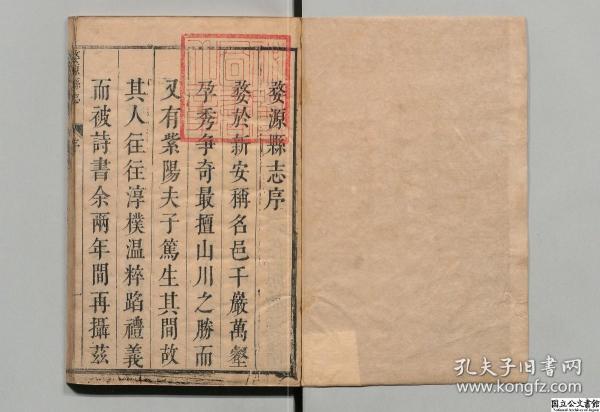 婺源縣志序
婺於新安稱名邑千巖萬壑
孕秀争奇最擅山川之勝而
又有紫陽夫子篤生其間故
其人往往淳樸温粹蹈禮義
而被詩書余兩年間再攝茲
婺源縣志
序
孔夫子旧书网
www.kongfz.com
国立公文書館
National Archives of Japan